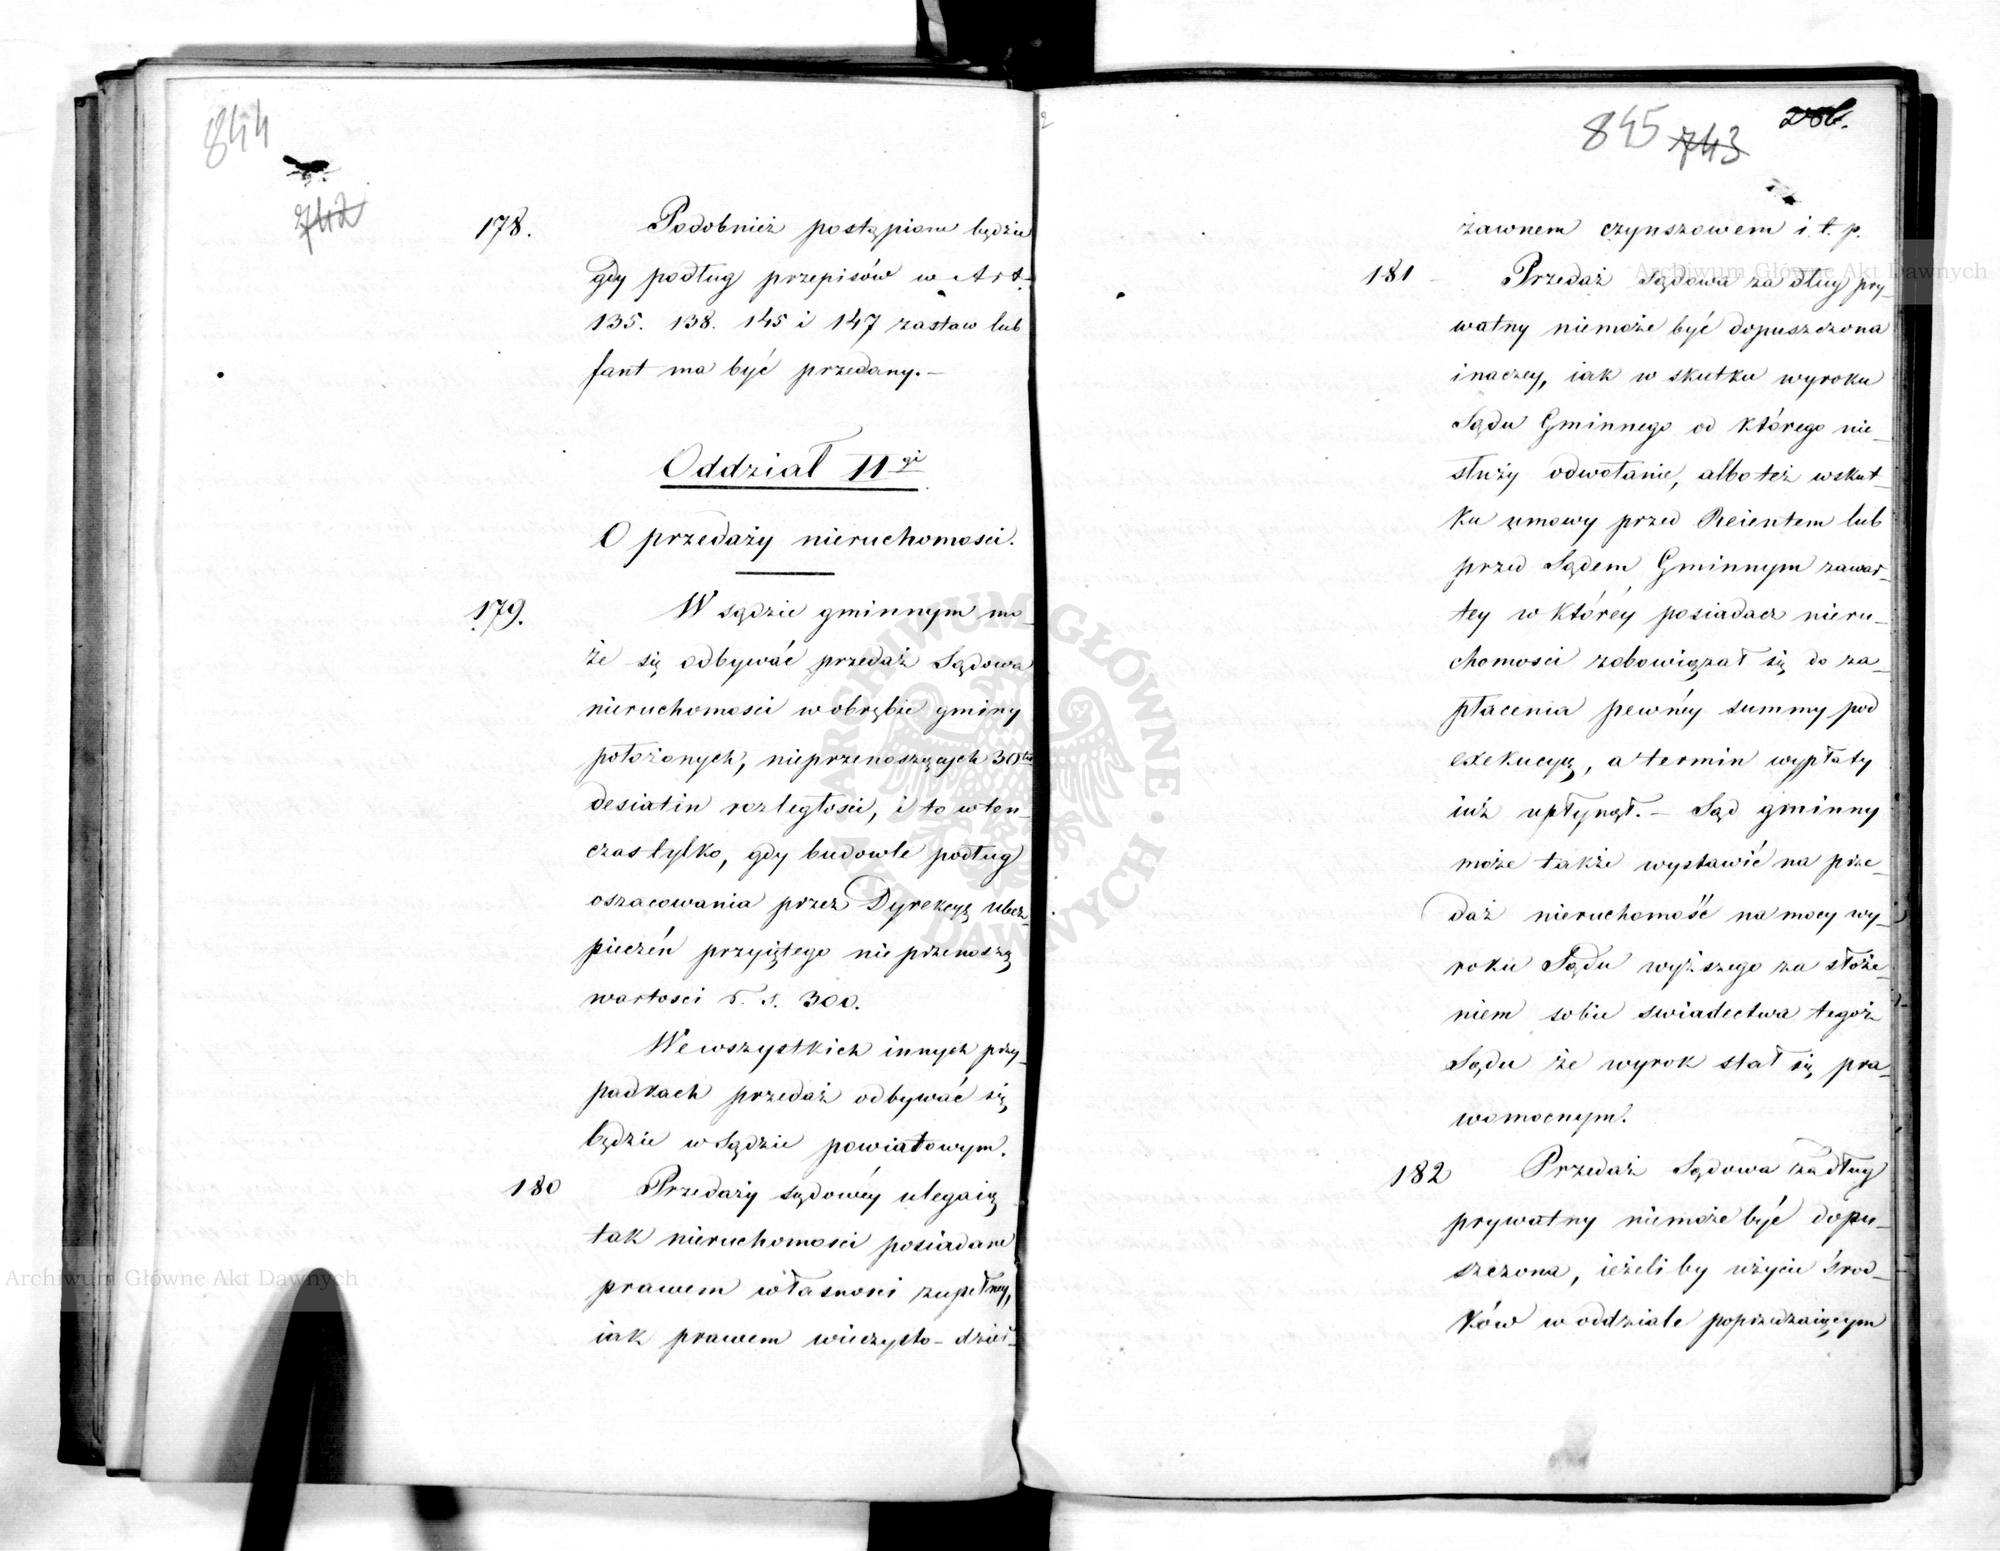 844
742
178. Podobnież postąpiono będzie
gdy podług przepisów w Art.
135. 138. 145 i 147 zastaw lub
fant ma być przedany.—
Oddział II gi
O przedaży nieruchomości.
179. W sądzie gminnym mo-
że się odbywać przedaż Sądowa
nieruchomości w obrębie gminy
położonych, nieprzenoszących 30tu
desiatin rozległości, i to w ten-
czas tylko, gdy budowle podług
oszacowania przez Dyrekcyą ubez-
pieczeń przyiętego nie przenoszą
wartości r. s. 300.
We wszystkich innych przy-
padkach przedaż odbywać się
będzie w Sądzie powiatowym.
180 Przedaży sądowéy ulegaią
tak nieruchomości posiadane
prawem własności zupełney,
iak prawem wieczysto-dzier-
845 743
żawnem czynszowem i. t. p.
181 - Przedaż Sądowa za dług pry-
watny niemoże być dopuszczona
inaczey, iak w skutku wyroku
Sądu Gminnego od którego nie-
służy odwołanie, albo też wskut-
ku umowy przed Reientem lub
przed Sądem Gminnym zawar-
tey w któréy posiadacz nieru-
chomości zobowiązał się do za-
płacenia pewnéy summy pod
exekucyą, a termin wypłaty
iuż upłynął.— Sąd gminny
może także wystawić na prze-
daż nieruchomość na mocy wy-
roku Sądu wyższego za złoże-
niem sobie swiadectwa tegoż
Sądu że wyrok stał się pra-
womocnym.
182 Przedaż Sądowa za dług
prywatny niemoże być dopu-
szczona, ieżeliby użycie środ-
ków w oddziale poprzedzaiącym
Archiwum Główne Akt Dawnych
Archiwum Główne Akt Dawnych
ARCHIWUM GŁÓWNE AKT DAWNYCH